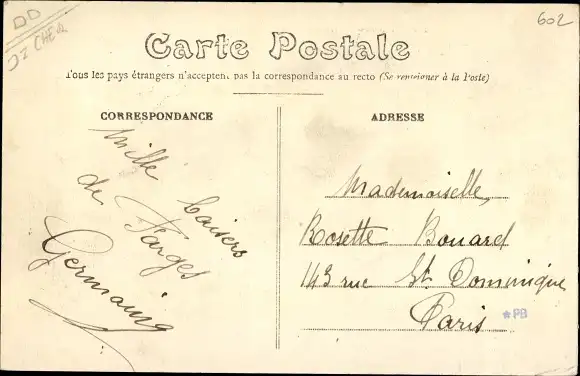 DD
602
Carte Postale
Tous les pays étrangers n'acceptent pas la correspondance au recto (Se renseigner à la Poste)
CORRESPONDANCE
Mille baisers
de Farges
Germaine
ADRESSE
Mademoiselle,
Rosette Bouard
143 rue St. Dominique
Paris
*PB